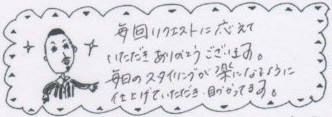 毎回リクエストに応えて
いただきありがとうございます。
毎日のスタイリングが楽になるように
仕上げていただき、助かってます。